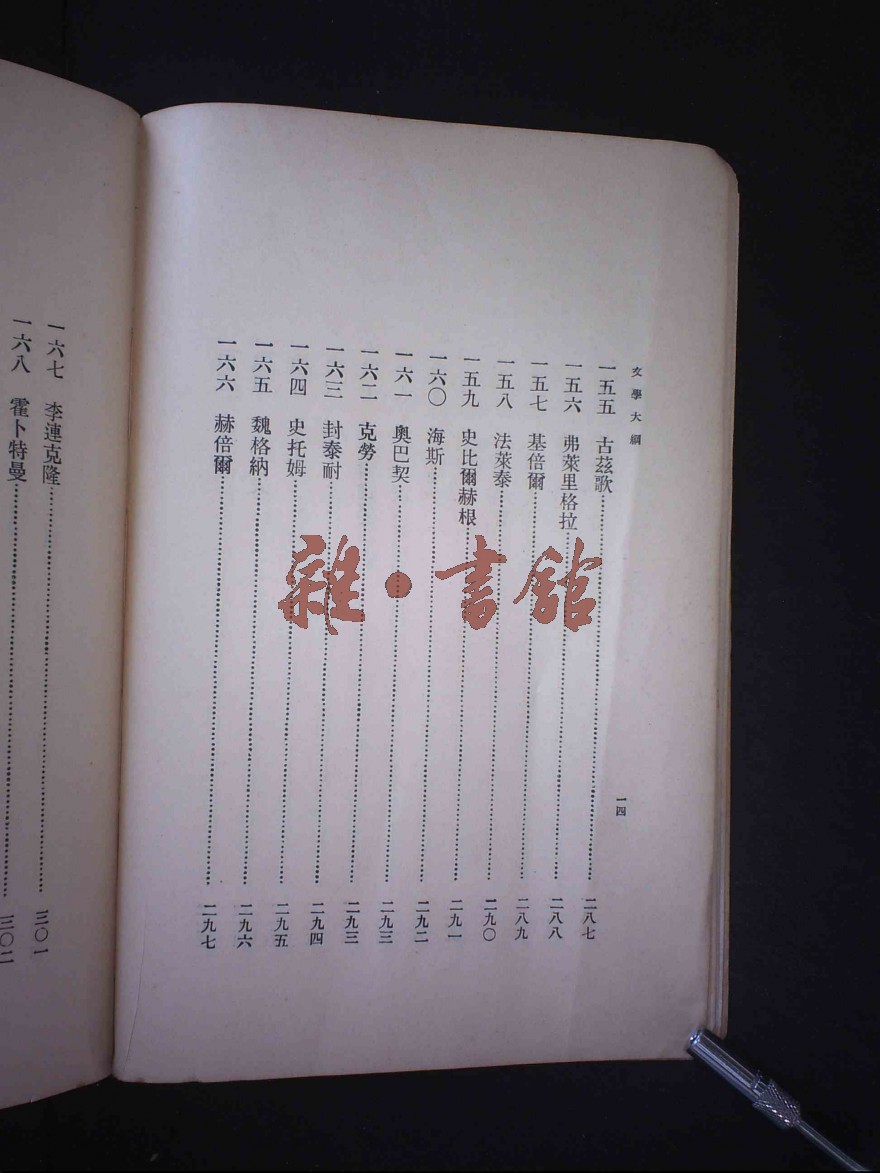 文學大綱
一四
一五五 古茲歌 二八七
一五六 弗萊里格拉 二八八
一五七 基倍爾 二八九
一五八 法萊泰 二九〇
一五九 史比爾赫根 二九一
一六〇 海斯 二九二
一六一 奧巴契 二九三
一六二 克勞 二九三
一六三 封泰耐 二九四
一六四 史托姆 二九五
一六五 魏格納 二九六
一六六 赫倍爾 二九七
一六七 李連克隆 三〇一
一六八 霍卜特曼 三〇二
雜·書館